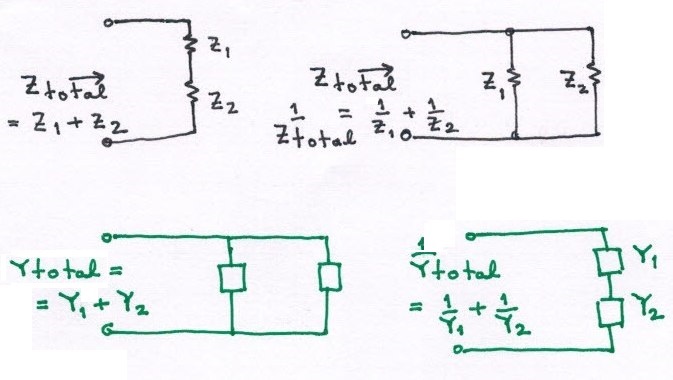 Z₁
Z total
Z₂
= Z₁ + Z₂
Z total
1/Z total = 1/Z₁ + 1/Z₂
Z₁
Z₂
Y total =
= Y₁ + Y₂
1/Y total
= 1/Y₁ + 1/Y₂
Y₁
Y₂